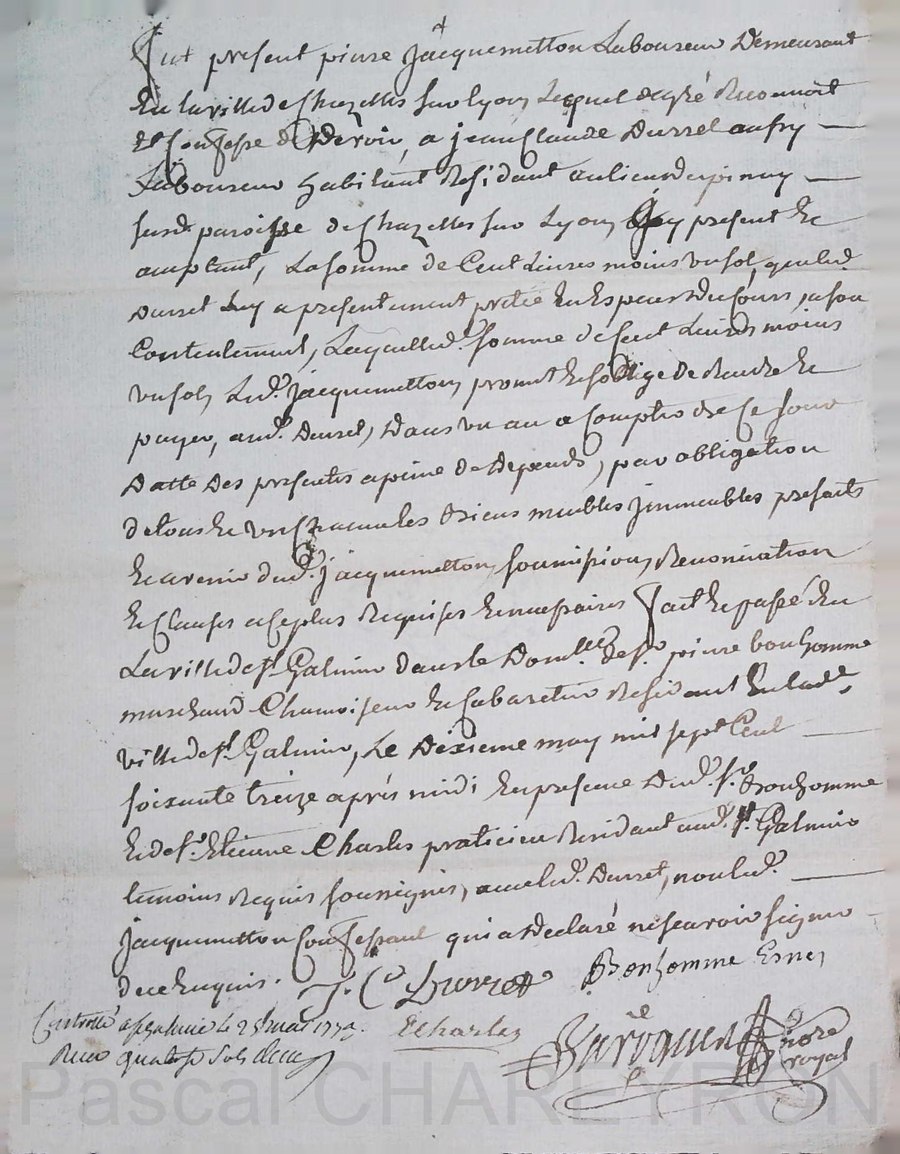 Fut present pierre jacquemetton Laboureur Demeurant
En la ville de Chazelles sur lyon, Lequel de gré Reconnoit
Et Confesse Devoir, a jean Claude Durret aussy
Laboureur habitant Residant au lieu du pinay
susd. paroisse de Chazelles sur Lyon, Icy present Et
acceptant, La somme de Cent Livres moins un sol, que led.
Durret Luy a presentement pretée En Especes du Cours, a son
Contentement, Laquelled. somme de Cent Livres moins
un sol, Led. jacquemetton, promet Et s'oblige De Rendre Et
payer, aud. Durret, Dans un an a Compter de Ce jour
Datte Des presentes a peine de Depends, par obligation
de tous Et uns Chacuns les Biens meubles jmmeubles presents
Et avenir dud. jacquemetton, soumission, Renonciation
Et Clauses a Ce plus Requises Et necessaires fait Et passé En
La ville de St. Galmier dans le Domlle. de Sr. pierre bonhomme
marchand Chamoiseur Et Cabaretier Residant En lade.
ville de St. Galmier, Le Dixieme may mil sept Cent
soixante treize aprés midi En presence Dud. Sr. Bonhomme
Et de Sr. Etienne Charles praticien Residant aud. St. Galmier
temoins Requis soussignés, avec led. Durret, non led.
jacquemetton Confessant qui a Declaré ne scavoir signer
de ce Enquis.
J. C. Durret Bonhomme
Controllé a St galmier le may 1773.
Recu quatorze sols
E Charles
nore
royal
Pascal CHAREYRON